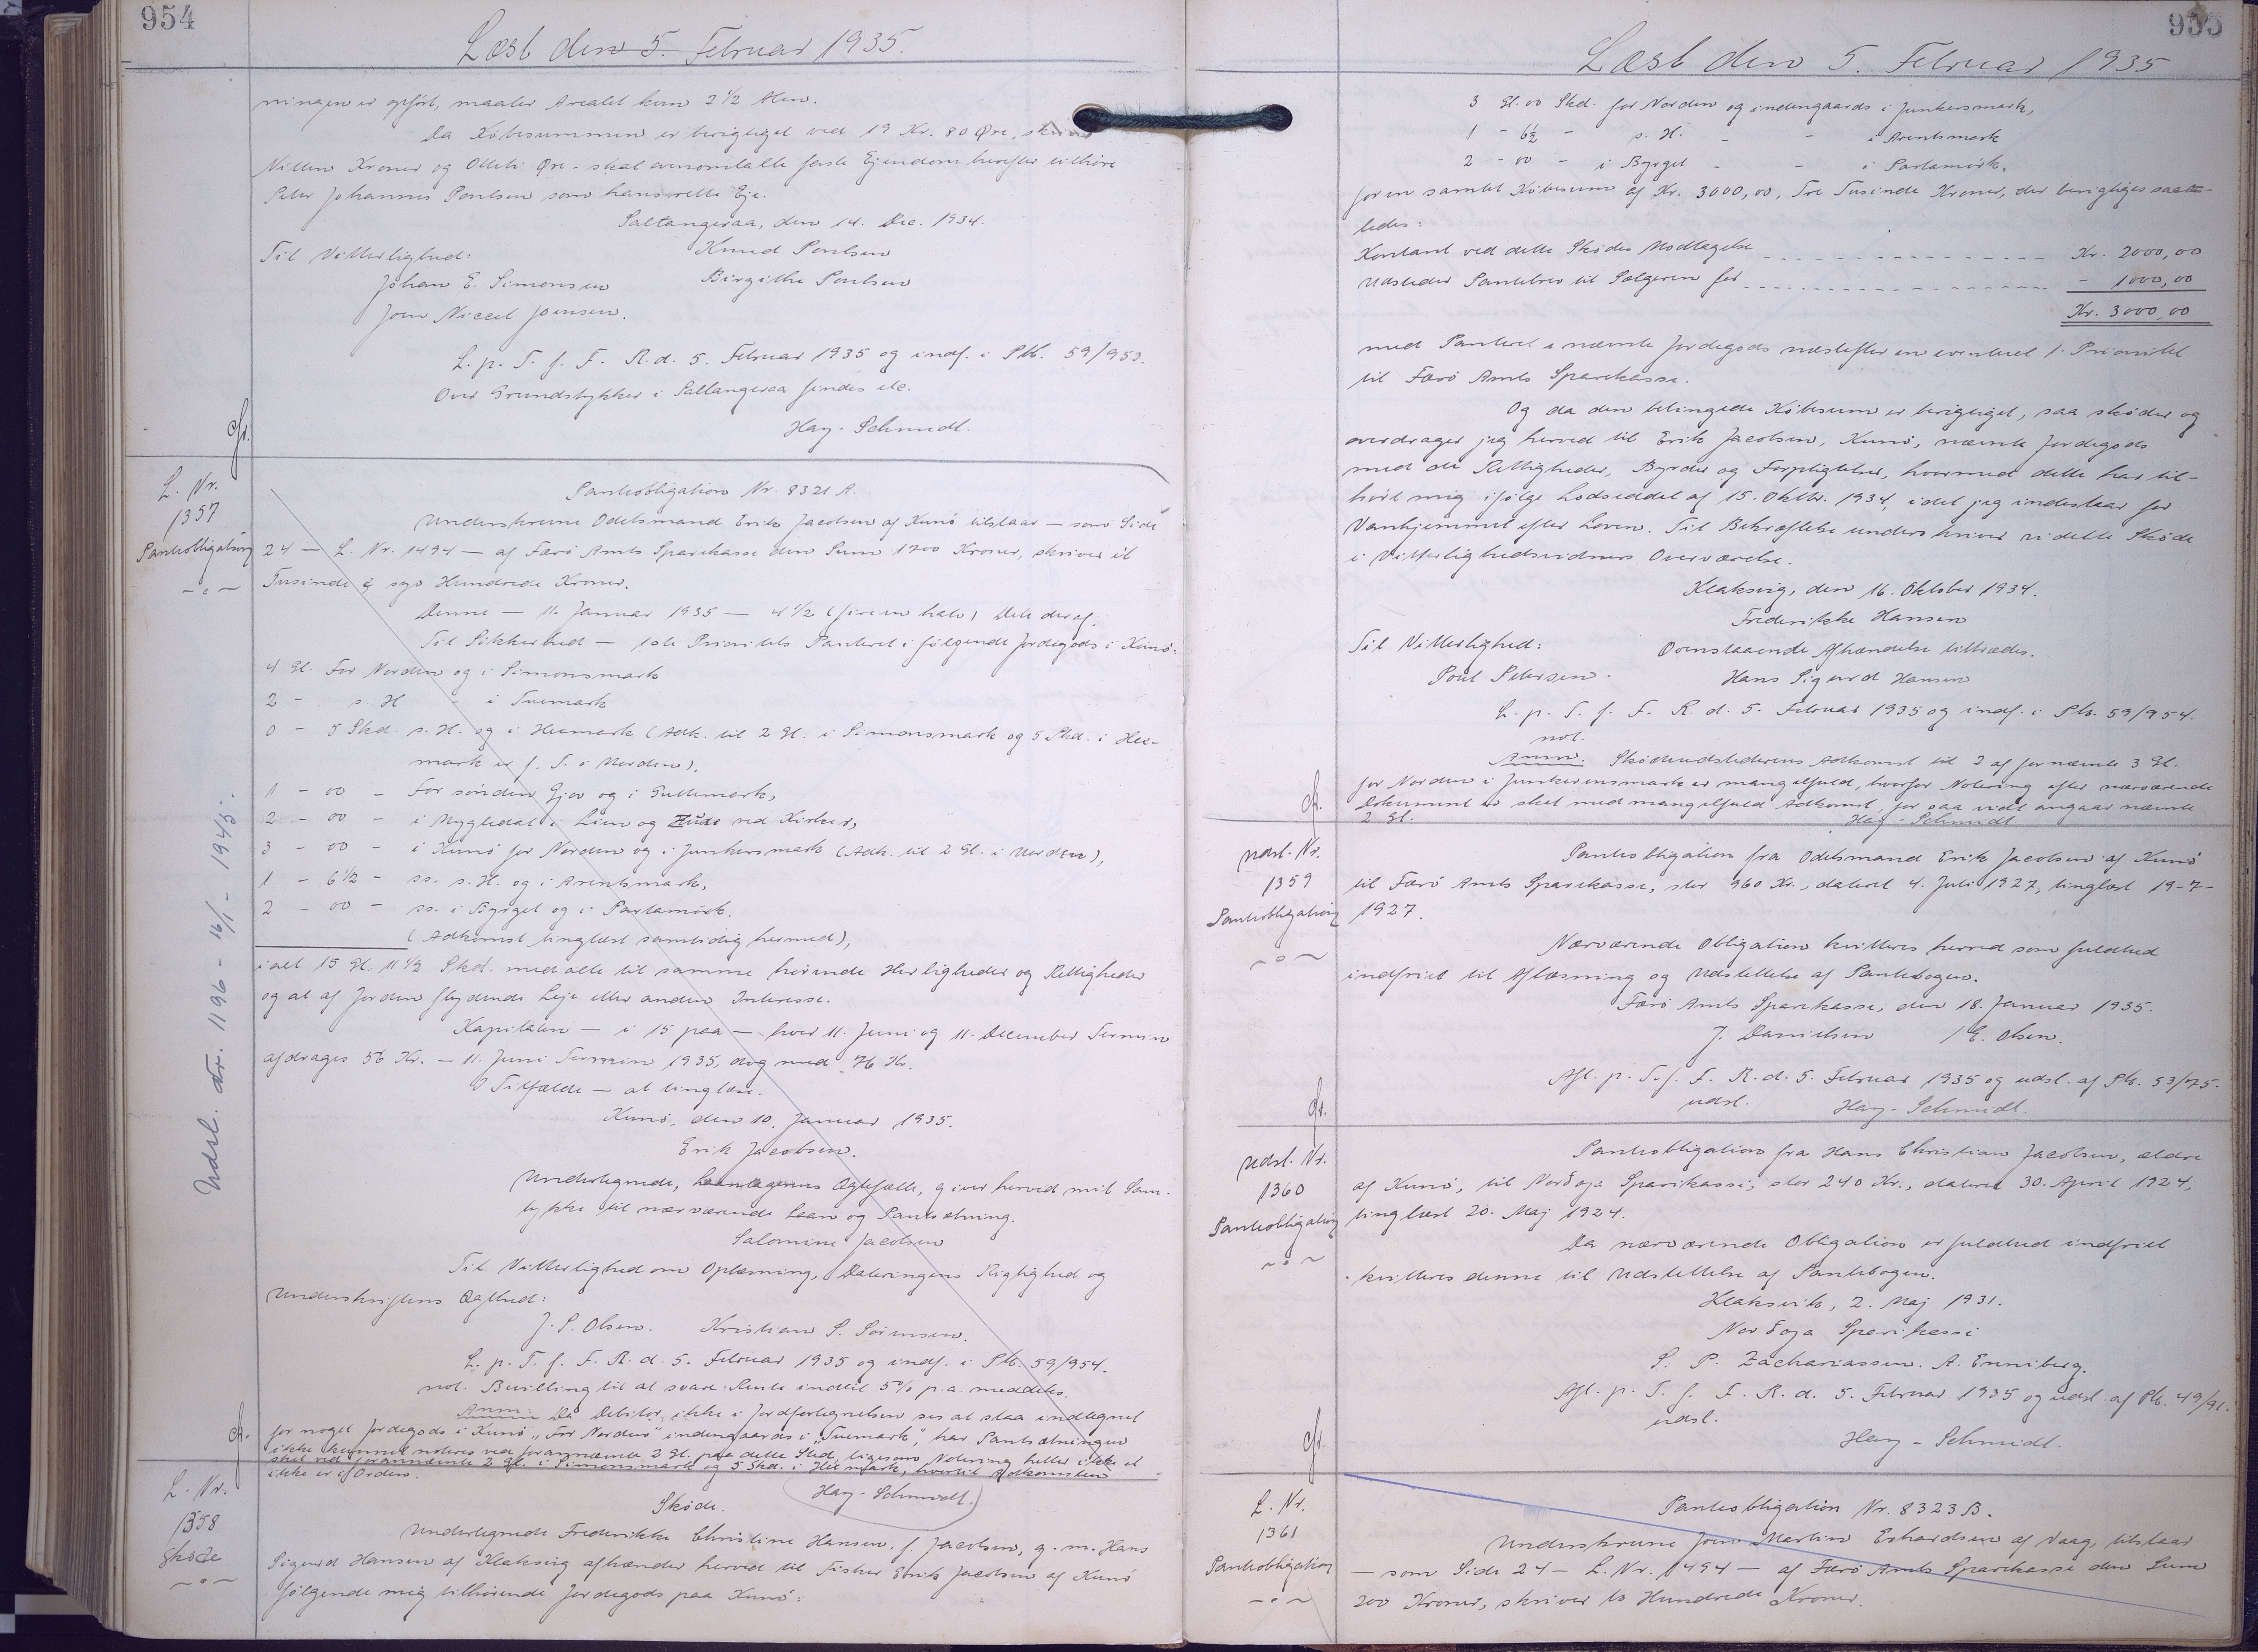 954
Læst den 5. Februar 1935.
ningen er opført, maaler Arealet kun 2 1/2 Alen.
Da Købesummen er berigtiget ved 19 Kr. 80 Øre, skriver
Nitten Kroner og Otteti Øre - skal ovenomtalte faste Ejendom herefter tilhøre
Peter Johannes Poulsen som hans rette Eje.
Saltangeraa, den 14. Dec. 1934.
Til Vitterlighed: Knud Poulsen
Johan E. Simonsen Birgithe Poulsen
Joen Niceel Joensen.
L. p. T. f. F. R. d. 5. Februar 1935 og indf. i Ptb. 59/953.
Over Grundstykker i Saltangeraa findes etc.
Hay-Schmidt.
L. Nr.
1357
Panteobligation
Panteobligation Nr. 8321 A.
Underskrevne Odelsmand Erik Jacobsen af Kunø tilstaar — som Side
24 — L. Nr. 1494 — af Færø Amts Sparekasse den Sum 1700 Kroner, skriver et
Tusinde & syv Hundrede Kroner.
Denne — 11. Januar 1935 — 4 1/2 (fire en halv) Dele deraf.
Til Sikkerhed — 1ste Prioritets Panteret i følgende Jordegods i Kunø:
4 Gl. For Norden og i Simonsmark
2 - s. H - i Tuemark
0 - 5 Skd. s. H. og i Heemark (Adk. til 2 Gl. i Simonsmark og 5 Skd. i Hee-
mark er f. T. i Uorden),
1 - 00 - For sønden Gjov og i Guttemark,
2 - 00 - i Nygledal i Lien og Huse ved Kirken,
3 - 00 - i Kunø for Norden og i Junkersmark (Adk. til 2 Gl. i Uorden),
1 - 6 1/2 - ss. s. H. og i Arentsmark,
2 - 00 - ss. i Byrget og i Partamörk.
(Adkomst tinglæst samtidig hermed),
ialt 15 Gl. 11 1/2 Skd. med alle til samme hørende Herligheder og Rettigheder
og al af Jorden flydende Leje eller anden Interesse.
Kapitalen — i 15 paa — hver 11. Juni og 11. December Termin
afdrages 56 Kr. — 11. Juni Termin 1935, dog med 76 Kr.
I Tilfælde — at tinglæse.
Kunø, den 10. Januar 1935.
Erik Jacobsen.
Undertegnede, Laantagerens Ægtefælle, giver herved mit Sam-
tykke til nærværende Laan og Pantsætning.
Salomine Jacobsen
Til Vitterlighed om Oplæsning, Dateringens Rigtighed og
Underskriftens Ægthed:
J. P. Olsen. Kristian P. Sörensen.
L. p. T. f. F. R. d. 5. Februar 1935 og indf. i Ptb. 59/954.
not. Bevilling til at svare Rente indtil 5% p.a. meddeles.
Anm: Da Debitor ikke i Jordfortegnelsen ses at staa indtegnet
for noget Jordegods i Kunø "For Norden" indengaards i "Tuemark", har Pantsætningen
ikke kunnet noteres ved forannævnte 2 Gl. paa dette Sted, ligesom Notering heller ikke er
sket ved forannævnte 2 Gl. i Simonsmark og 5 Skd. i Heemark, hvortil Adkomsten
ikke er i Orden.
Hay-Schmidt.
Udsl. Nr. 1196 - 16/1 - 1943.
L. Nr.
1358
Skøde
Skøde.
Undertegnede Frederikke Christine Hansen, f. Jacobsen, g. m. Hans
Sigurd Hansen af Klaksvig afhænder herved til Fisker Erik Jacobsen af Kunø
følgende mig tilhørende Jordegods paa Kunø:
955
Læst den 5. Februar 1935
3 Gl. 00 Skd. for Norden og indengaards i Junkersmark,
1 - 6½ - s. H. - - i Arentsmark
2 - 00 - i Byrget - - i Partamörk,
for en samlet Købesum af Kr. 3000,00, Tre Tusinde Kroner, der berigtiges saale-
ledes:
Kontant ved dette Skødes Modtagelse Kr. 2000,00
Udsteder Pantebrev til Sælgeren for - 1000,00
Kr. 3000,00
med Panteret i nævnte Jordegods næstefter en eventuel 1. Prioritet
til Færø Amts Sparekasse.
Og da den betingede Købesum er berigtiget, saa skøder og
overdrager jeg herved til Erik Jacobsen, Kunø, nævnte Jordegods
med de Rettigheder, Byrder og Forpligtelser, hvormed dette har til-
hørt mig ifølge Lodseddel af 15. Oktbr. 1934, idet jeg indestaar for
Vanhjemmel efter Loven. Til Bekræftelse underskriver vi dette Skøde
i Vitterlighedsvidners Overværelse.
Klaksvig, den 16. Oktober 1934.
Frederikke Hansen
Til Vitterlighed: Ovenstaaende Afhændelse tiltrædes.
Poul Petersen. Hans Sigurd Hansen
L. p. T. f. F. R. d. 5. Februar 1935 og indf. i Ptb. 59/954.
not.
Anm. Skødeudstederens Adkomst til 2 af fornævnte 3 Gl.
for Norden i Junkerensmark er mangelfuld, hvorfor Notering efter nærværende
Dokument er sket med mangelfuld Adkomst, for saa vidt angaar nævnte
2 Gl. Hay-Schmidt
Udsl. Nr.
1359
Panteobligation
Panteobligation fra Odelsmand Erik Jacobsen af Kunø
til Færø Amts Sparekasse, stor 960 Kr., dateret 4. Juli 1927, tinglæst 19-7-
1927.
Nærværende Obligation kvitteres herved som fuldtud
indfriet til Aflæsning og Udslettelse af Pantebogen.
Færø Amts Sparekasse, den 18. Januar 1935.
J. Danielsen / E. Olsen.
Afl. p. T. f. F. R. d. 5. Februar 1935 og udsl. af Ptb. 53/75.
udsl. Hay-Schmidt.
Udsl. Nr.
1360
Panteobligation
Panteobligation fra Hans Christian Jacobsen, ældre
af Kunø, til Norðoya Sparikassi, stor 240 Kr., dateret 30. April 1924,
tinglæst 20. Maj 1924.
Da nærværende Obligation er fuldtud indfriet
kvitteres denne til Udslettelse af Pantebogen.
Klaksvik, 2. Maj 1931.
Norðoya Sparikassi
S. P. Zachariassen. A. Enniberg.
Afl. p. T. f. F. R. d. 5. Februar 1935 og udsl. af Ptb. 49/91.
udsl.
Hay-Schmidt.
L. Nr.
1361
Panteobligation
Panteobligation Nr. 8323 B.
Underskrevne Joen Martin Erhardsen af Vaag, tilstaar
— som Side 24 — L. Nr. 1494 — af Færø Amts Sparekasse den Sum
200 Kroner, skriver to Hundrede Kroner.